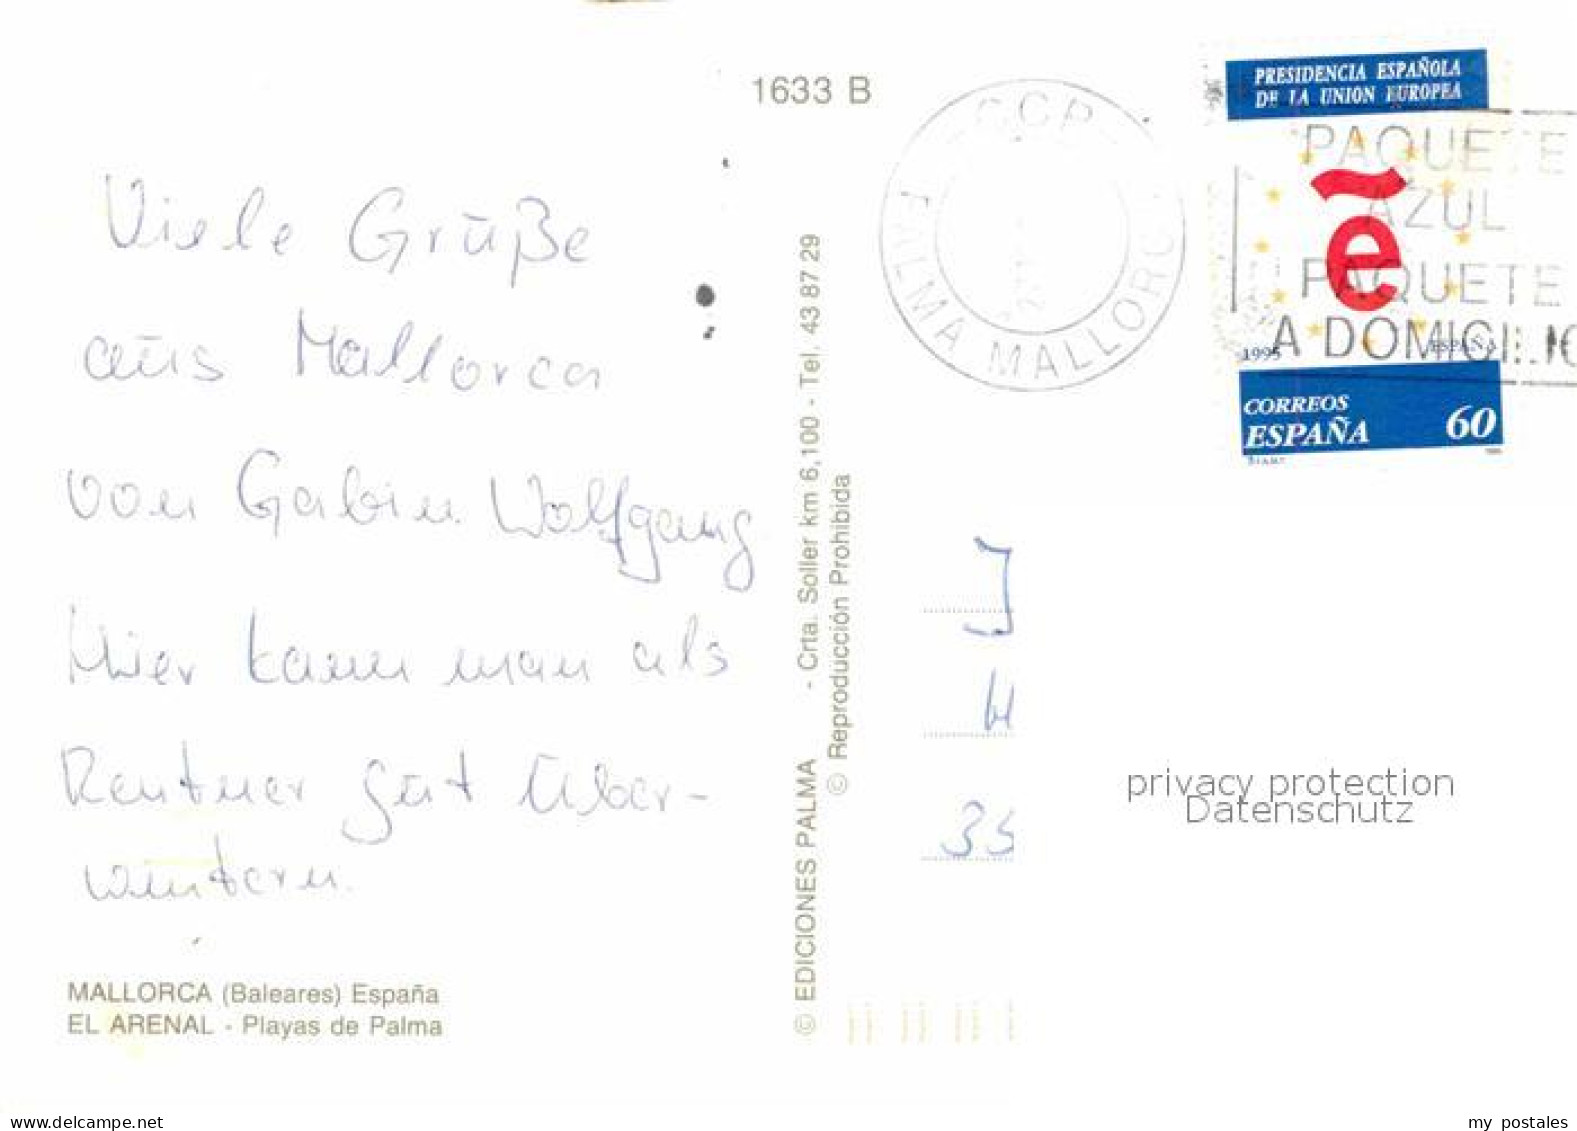 1633 B
CCP
PALMA MALLORC
PRESIDENCIA ESPAÑOLA
DE LA UNION EUROPEA
PAQUETE
AZUL
PAQUETE
A DOMICILIO
ẽ
1995 ESPAÑA
CORREOS
ESPAÑA 60
Viele Grüße
aus Mallorca
von Gabi u. Wolfgang
Hier kann man als
Rentner gut über-
wintern.
MALLORCA (Baleares) España
EL ARENAL - Playas de Palma
© EDICIONES PALMA - Crta. Soller km 6,100 - Tel. 43 87 29
© Reproducción Prohibida
privacy protection
Datenschutz
www.delcampe.net
my_postales